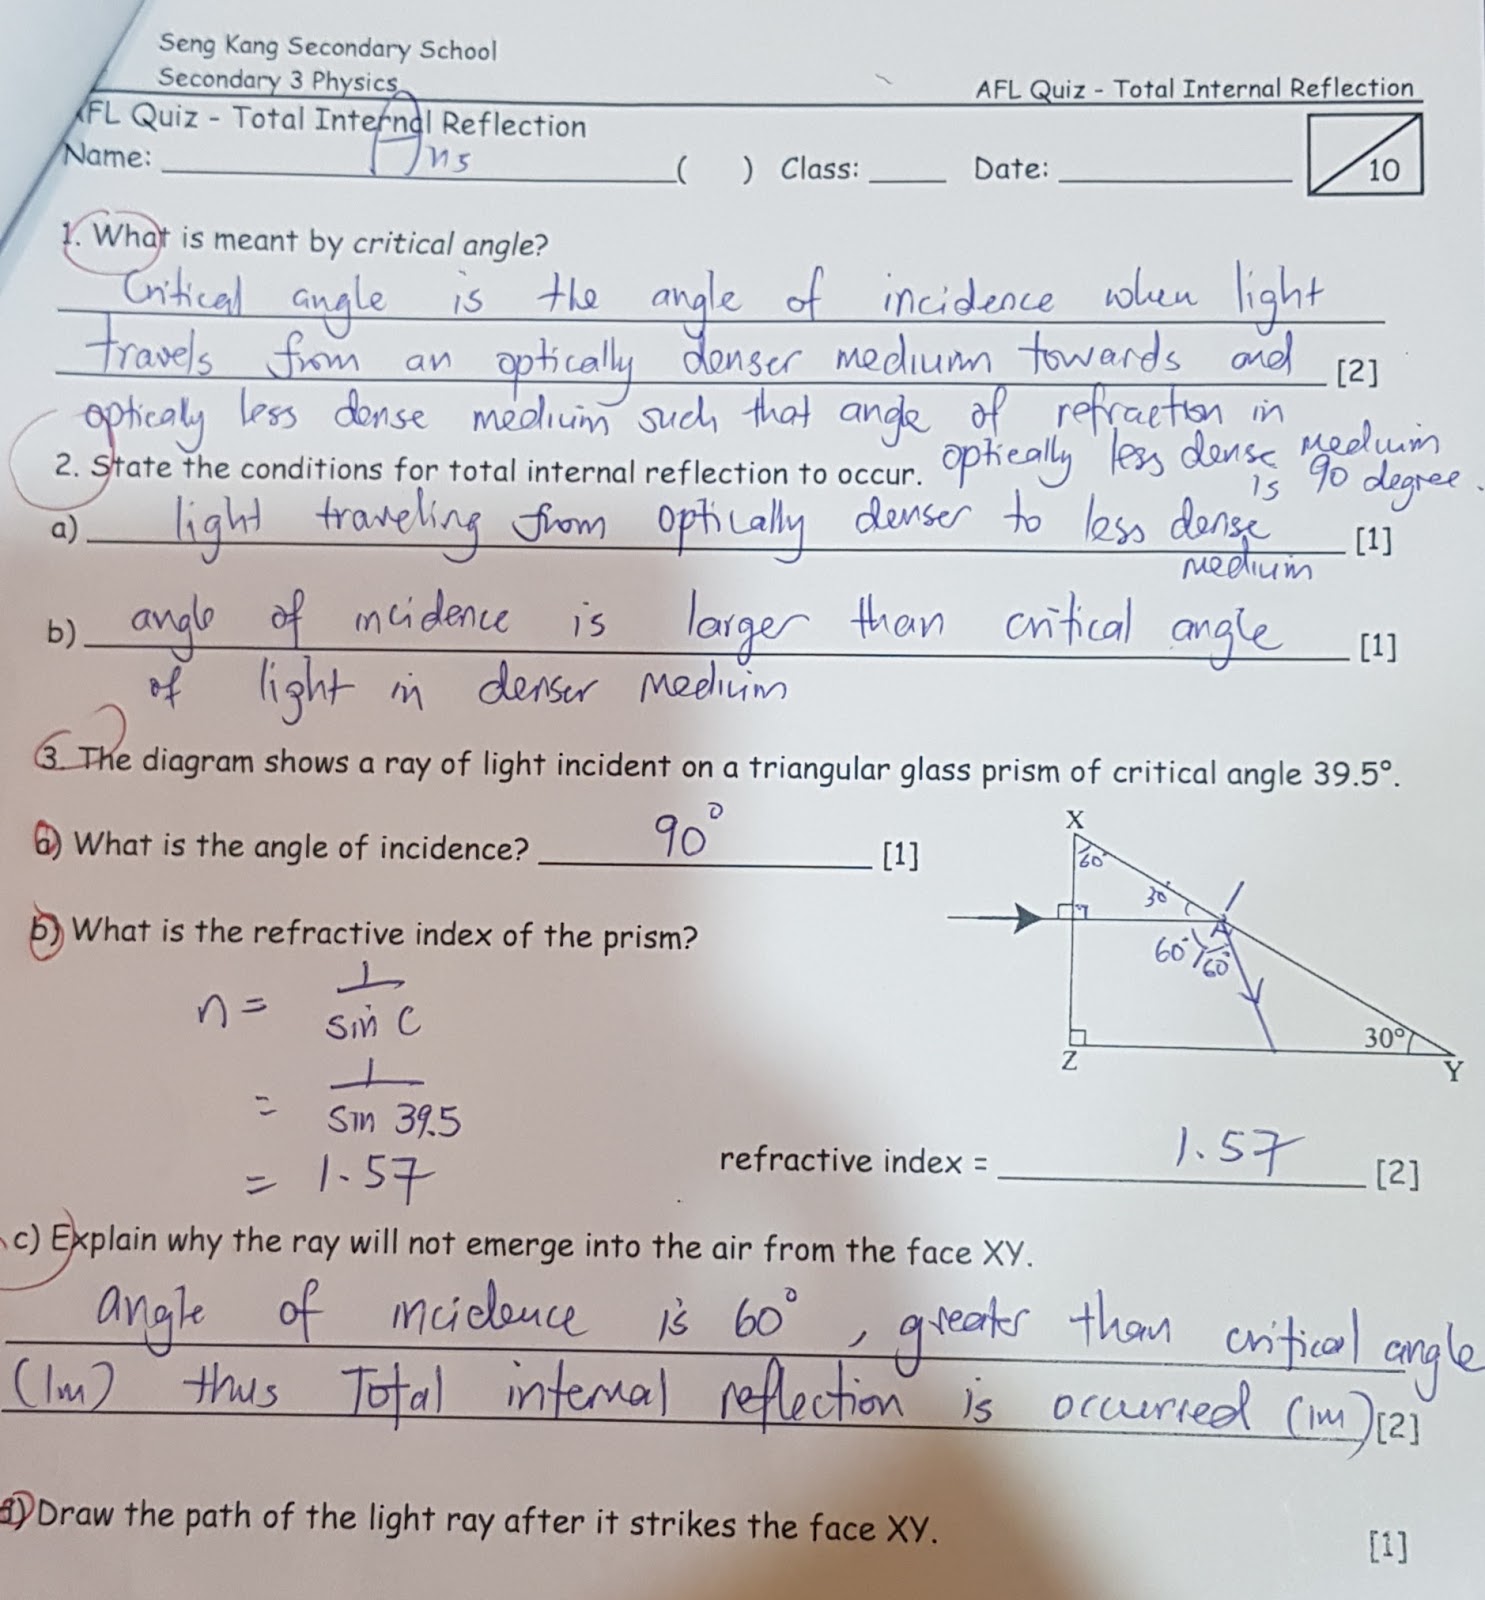 Seng Kang Secondary School
Secondary 3 Physics
AFL Quiz - Total Internal Reflection
AFL Quiz - Total Internal Reflection
Name: Ans ( ) Class: Date:
10
1. What is meant by critical angle?
Critical angle is the angle of incidence when light
travels from an optically denser medium towards and [2]
opticaly less dense medium such that angle of refraction in
optically less dense medium
is 90 degree.
2. State the conditions for total internal reflection to occur.
a) light traveling from optically denser to less dense [1]
medium
b) angle of incidence is larger than critical angle [1]
of light in denser medium
3. The diagram shows a ray of light incident on a triangular glass prism of critical angle 39.5°.
a) What is the angle of incidence? 90° [1]
X
60°
30°
60°
60°
30°
Z
Y
b) What is the refractive index of the prism?
n = 1
sin C
= 1
sin 39.5
= 1.57
refractive index = 1.57 [2]
c) Explain why the ray will not emerge into the air from the face XY.
angle of incidence is 60°, greater than critical angle
(1m) thus Total internal reflection is occurred (1m) [2]
d) Draw the path of the light ray after it strikes the face XY.
[1]